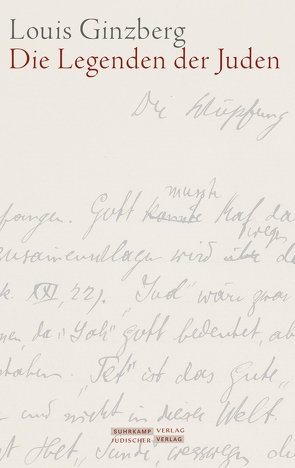 Louis Ginzberg
Die Legenden der Juden
Die Schöpfung
fangen. Gott konnte Kaf da
musste
wegen
wird über de
k. XXI, 22). "Jud" wäre zwar
da "Jah" Gott bedeutet, ab
"Tet" ist das Gute,
und nicht in dieser Welt.
Het, "Sünde, weswegen die
SUHRKAMP VERLAG
JÜDISCHER VERLAG